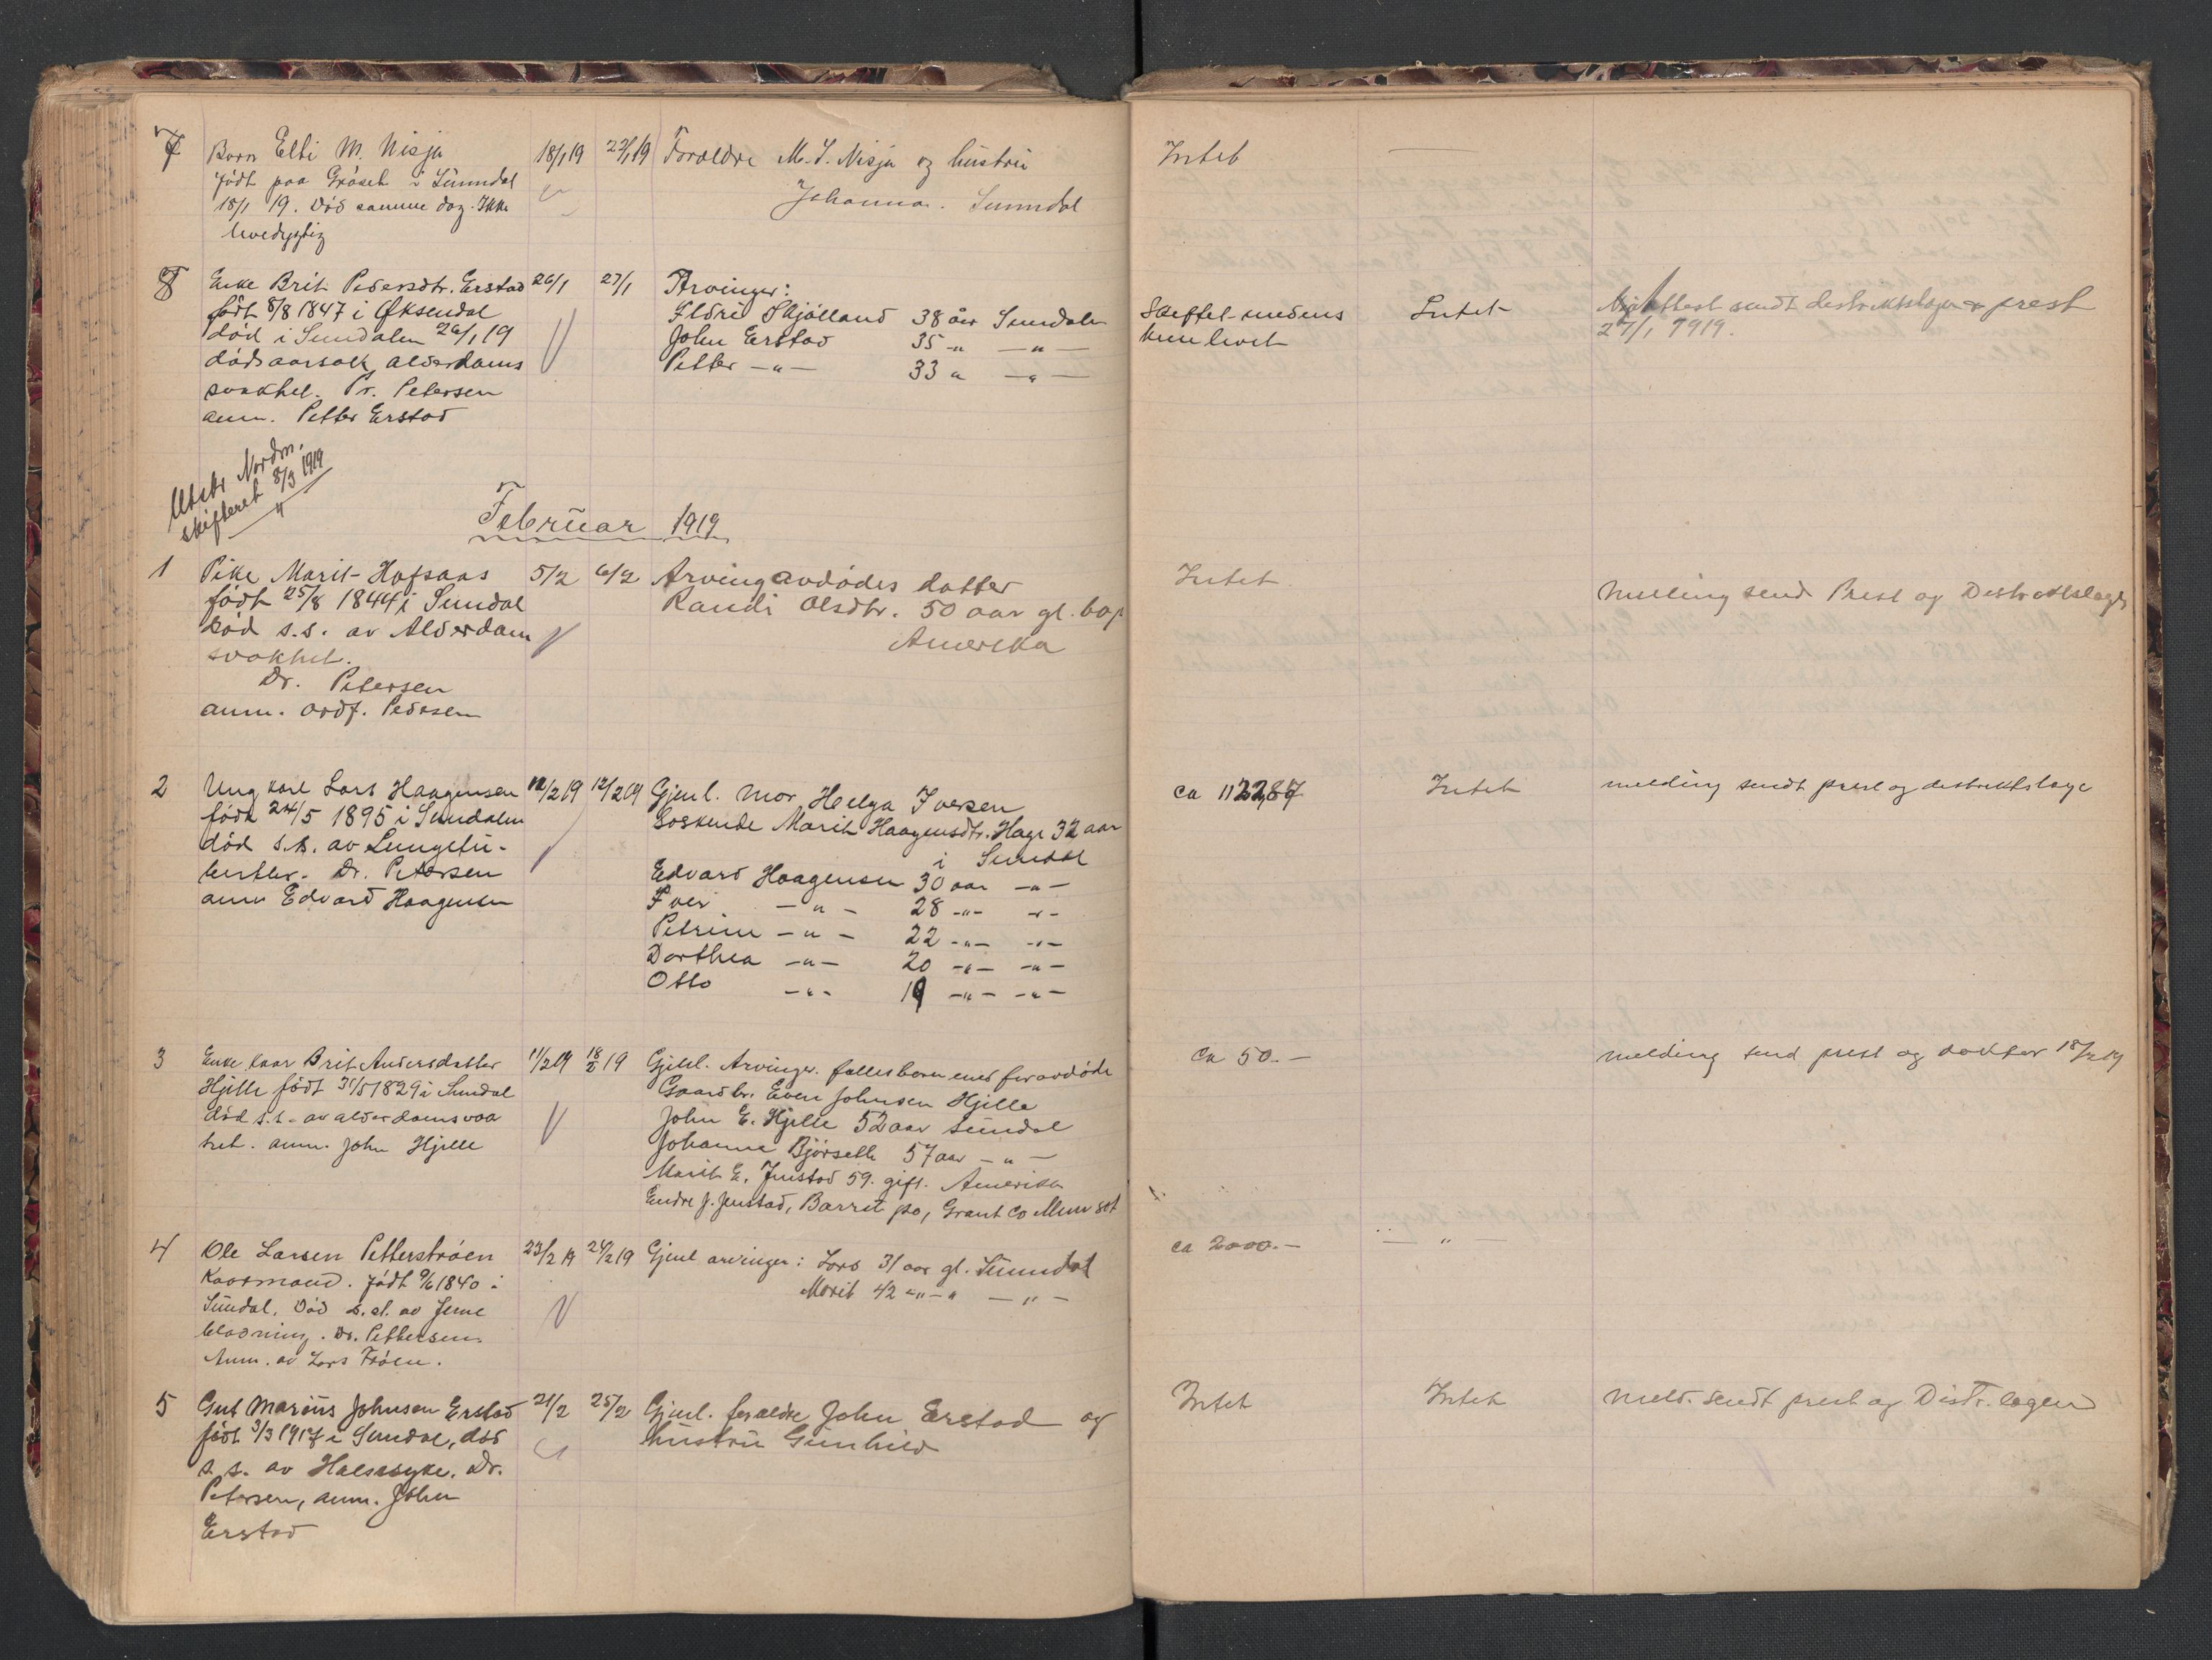 7 Barn Elbi M. Nisja 18/1 19 22/1 19 Foreldre M. S. Nisja og hustru Intet —
født paa Grøset i Sunndal Johanna. Sunndal
18/1 19. Død samme dag. Ikke
levedygtig
8 Enke Brit Pedersdtr. Erstad 26/1 27/1 Arvinger:
født 8/8 1847 i Øksendal Eldri Skjølland 38 åer Sundalen Skiftet medens Intet sendt destriktslagen & prest
død i Sundalen 26/1 19 John Erstad 35 " — " — hun levet 27/1 1919.
dødsaarsak, alderdoms Petter — " — 33 " — " —
svakhet. Dr. Petersen
anm. Petter Erstad
Utskr Nordm.
skifteret 8/3 1919
"
Februar 1919
1 Pike Marit Hafsaas 5/2 6/2 Arving avdødes datter Intet Melling send Prest og Destriktslage
født 25/8 1844 i Sundal Randi Olsdtr. 50 aar gl. bop
død s.s. av Alderdom Amerika
svakhet.
Dr. Petersen
anm. ordf. Pedersen
2 Ung karl Lars Haagensen 12/2 19 12/2 19 Gjenl. Mor Helga Iversen ca 112287 Intet melding sendt prest og destriktslage
født 24/5 1895 i Sundalen Søskende Marit Haagensdtr. Hage 32 aar
død s.s. av Lungetu- i Sundal
berkler. Dr. Petersen Edvard Haagensen 30 aar — " —
anm Edvard Haagensen Iver — " — 28 — " — — " —
Petrine — " — 22 — " — — " —
Dorthea — " — 20 — " — — " —
Otto — " — 19 — " — — " —
3 Enke kaar Brit Andersdatter 11/2 19 18/2 19 Gjenl. Arvinger. fellesbarn med foravdøde ca 50.— melding send prest og dokter 18/2 19
Hjelle født 31/5 1829 i Sundal Gaardbr. Even Johnsen Hjelle
død s.s. av alderdomsvaa John E. Hjelle 52 aar Sundal
het. anm. John Hjelle Johanne Bjørseth 57 aar — " —
Marit E. Jenstad 59. gift. Amerika
Endre J. Jenstad, Barret po, Grant Co Minn sot
4 Ole Larsen Petterstrøen 23/2 19 24/2 19 Gjenl arvinger: Lars 31 aar gl. Sunndal ca 2000.— — " —
Kaarmand. født 9/6 1840 i Marit 42 — " — " — " —
Sundal. Død s. st. av Jerne
blødning. Dr. Pettersen.
Anm. av Lars Trøen.
5 Gut Marius Johnsen Erstad 21/2 25/2 Gjenl. foreldre John Erstad og Intet Intet Meld. sendt prest og Distr. lagen
født 3/3 1917 i Sundal, død hustru Gunhild
s. s. av Halssyke. Dr.
Petersen, anm. John
Erstad